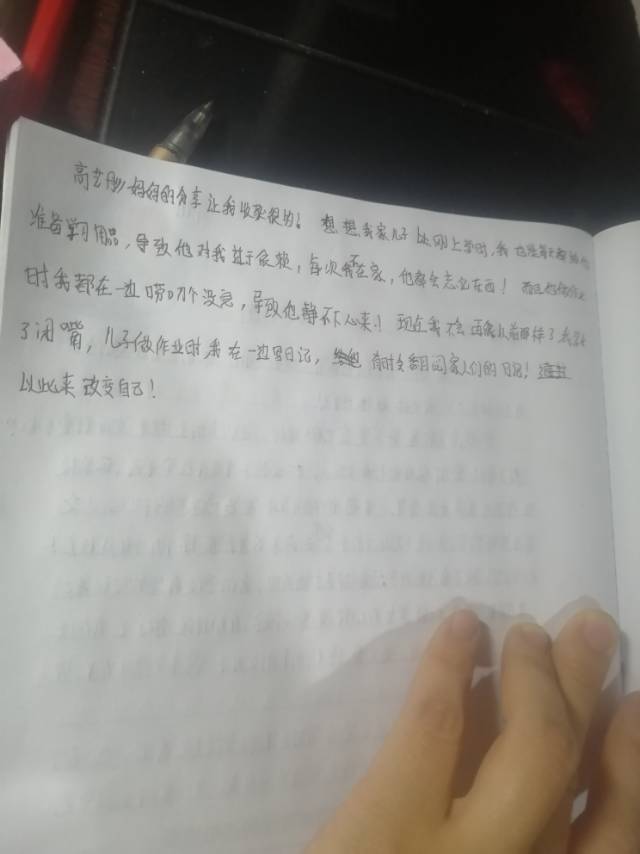 妈妈的分享让我收获很多！想想我家儿子比刚上学时，我也是每天都
准备学习用品，导致他对我过于依赖，每次不在家，他都会忘记东西！而且他做作业
时我都在一边唠叨个没完，导致他静不下心来！现在我不会再像以前那样了我
了闭嘴，儿子做作业时我在一边写日记，有时会翻阅家人们的日记！
以此来改变自己！